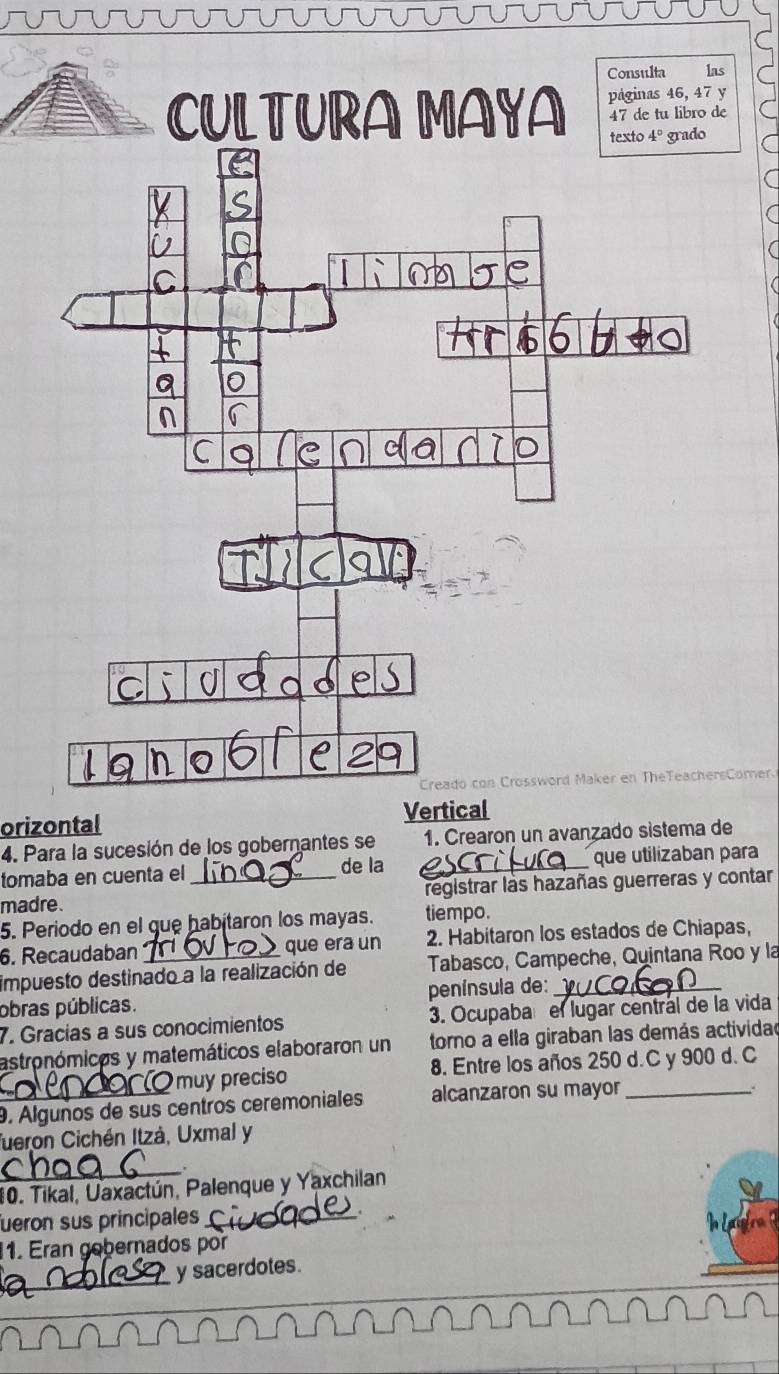 Consulta las
páginas 46, 47 y
47 de tu libro de
texto 4° grado
CULTURA MAYA
linaje
tributo
calendario
Tical
ciudades
lanobleza
Creado con Crossword Maker en TheTeachersCorner.
orizontal
4. Para la sucesión de los gobernantes se
tomaba en cuenta el linaje de la
madre.
5. Periodo en el que habitaron los mayas.
6. Recaudaban tributos que era un
impuesto destinado a la realización de
obras públicas.
7. Gracias a sus conocimientos
astronómicos y matemáticos elaboraron un
calendario muy preciso
9. Algunos de sus centros ceremoniales
fueron Cichén Itzá, Uxmal y
10. Tikal, Uaxactún, Palenque y Yaxchilan
fueron sus principales ciudades.
11. Eran gobernados por
la noblesa y sacerdotes.
Vertical
1. Crearon un avanzado sistema de
escritura que utilizaban para
registrar las hazañas guerreras y contar
tiempo.
2. Habitaron los estados de Chiapas,
Tabasco, Campeche, Quintana Roo y la
península de: yucatan
3. Ocupaba el lugar central de la vida
torno a ella giraban las demás activida
8. Entre los años 250 d.C y 900 d. C
alcanzaron su mayor ________.